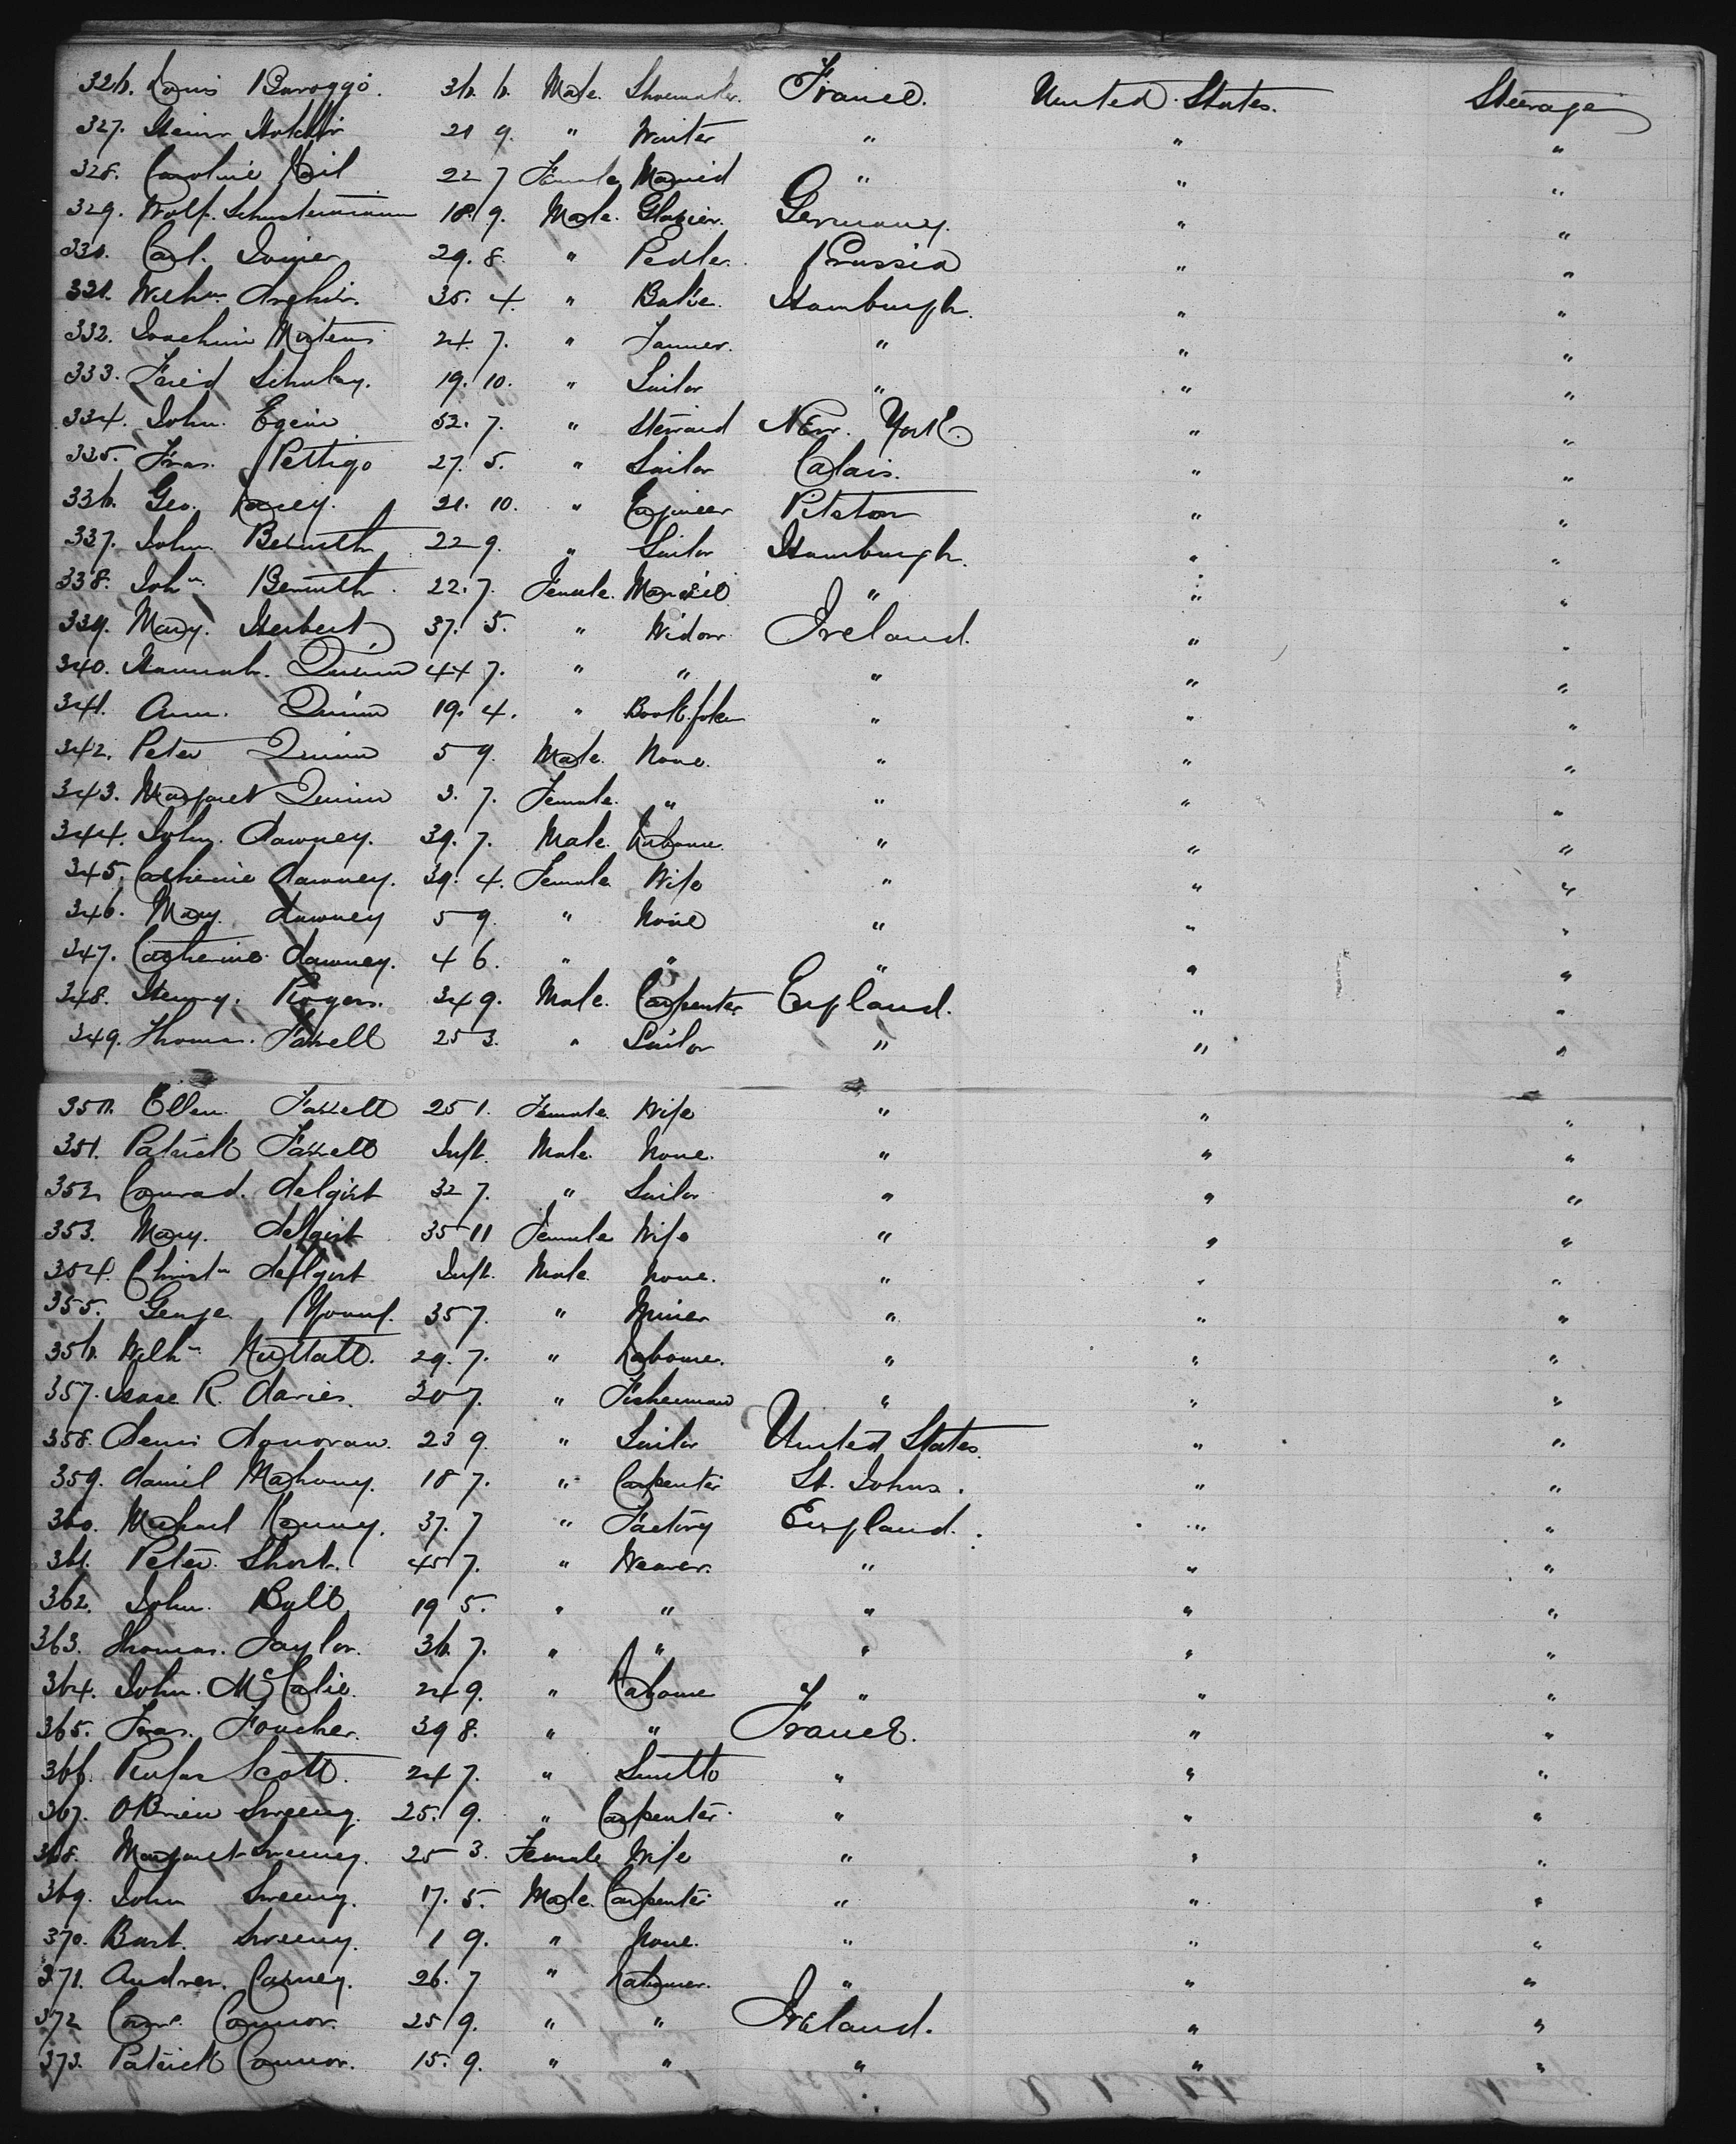 326. Louis 36. 6. Male. Shoemaker. France. United States. Steerage
327. 21 9. " Waiter " " "
328. Caroline 22 7 Female Maried " " "
329. Wolf. 18. 9. Male. Glazier. Germany. " "
330. Carl. 29. 8. " Pedler. Prussia " "
331. Wilhm. 35. 4. " Hamburgh. " "
332. Joachim 24. 7. " " " "
333. 19. 10. " Sailor " " "
334. John. 52. 7. " Steward New. York. " "
335. Fras. Pettigo 27. 5. " Sailor Calais. " "
336. Geo. 21. 10. " Engineer " "
337. John. 22 9. " Sailor Hamburgh. " "
338. Joh 22. 7. Female. " " "
339. Mary. Herbert 37. 5. " Widow Ireland. " "
340. Hannah. Quinn 44 7. " " " " "
341. Ann. Quinn 19. 4. " " " "
342. Peter Quinn 5 9. Male. None. " " "
343. Margaret Quinn 3. 7. Female. " " " "
344. John. dawney. 39. 7. Male. Laboure. " " "
345. Catherine dawney. 39. 4. Female Wife " " "
346. Mary. dawney 5 9. " None " " "
347. Catherine. dawney. 4 6. " " " " "
348. Henry. Rogers. 34 9. Male. Carpenter England. " "
349. Thomas. 25 3. " Sailor " " "
350. Ellen. 25 1. Female. Wife " " "
351. Patrick Inft. Male. None. " " "
352. Conrad. delgist 32 7. " Sailor " " "
353. Mary. 35 11 Female Wife " " "
354. Inft. Male. None. " " "
355. George Young. 35 7. " Miner " " "
356. Willm. Nuttall. 29. 7. " Laboure. " " "
357. Isaac R. davies. 20 7. " Fisherman " " "
358. Denis donovan. 23 9. " Sailor United States. " "
359. daniel Mahony. 18 7. " Carpenter St. Johns. " "
360. Michael Kenny. 37. 7 " Factory England. " "
361. Peter Short. 45 7. " Weaver. " " "
362. John. 19 5. " " " " "
363. Thomas. Taylor. 36. 7. " " " " "
364. John. 24 9. " Laboure " " "
365. Fras. Foucher. 39 8. " " France. " "
366. Rufus Scott. 24 7. " " " "
367. OBrien Sweeny. 25. 9. " Carpenter. " " "
368. Margaret Sweeny. 25 3. Female Wife " " "
369. John Sweeny. 17. 5. Male. Carpenter " " "
370. Bart. Sweeny. 1 9. " None. " " "
371. Andrew. Carney. 26. 7 " Labourer. " " "
372 Connor. 25 9. " " Ireland. " "
373. Patrick Connor. 15. 9. " " " " "